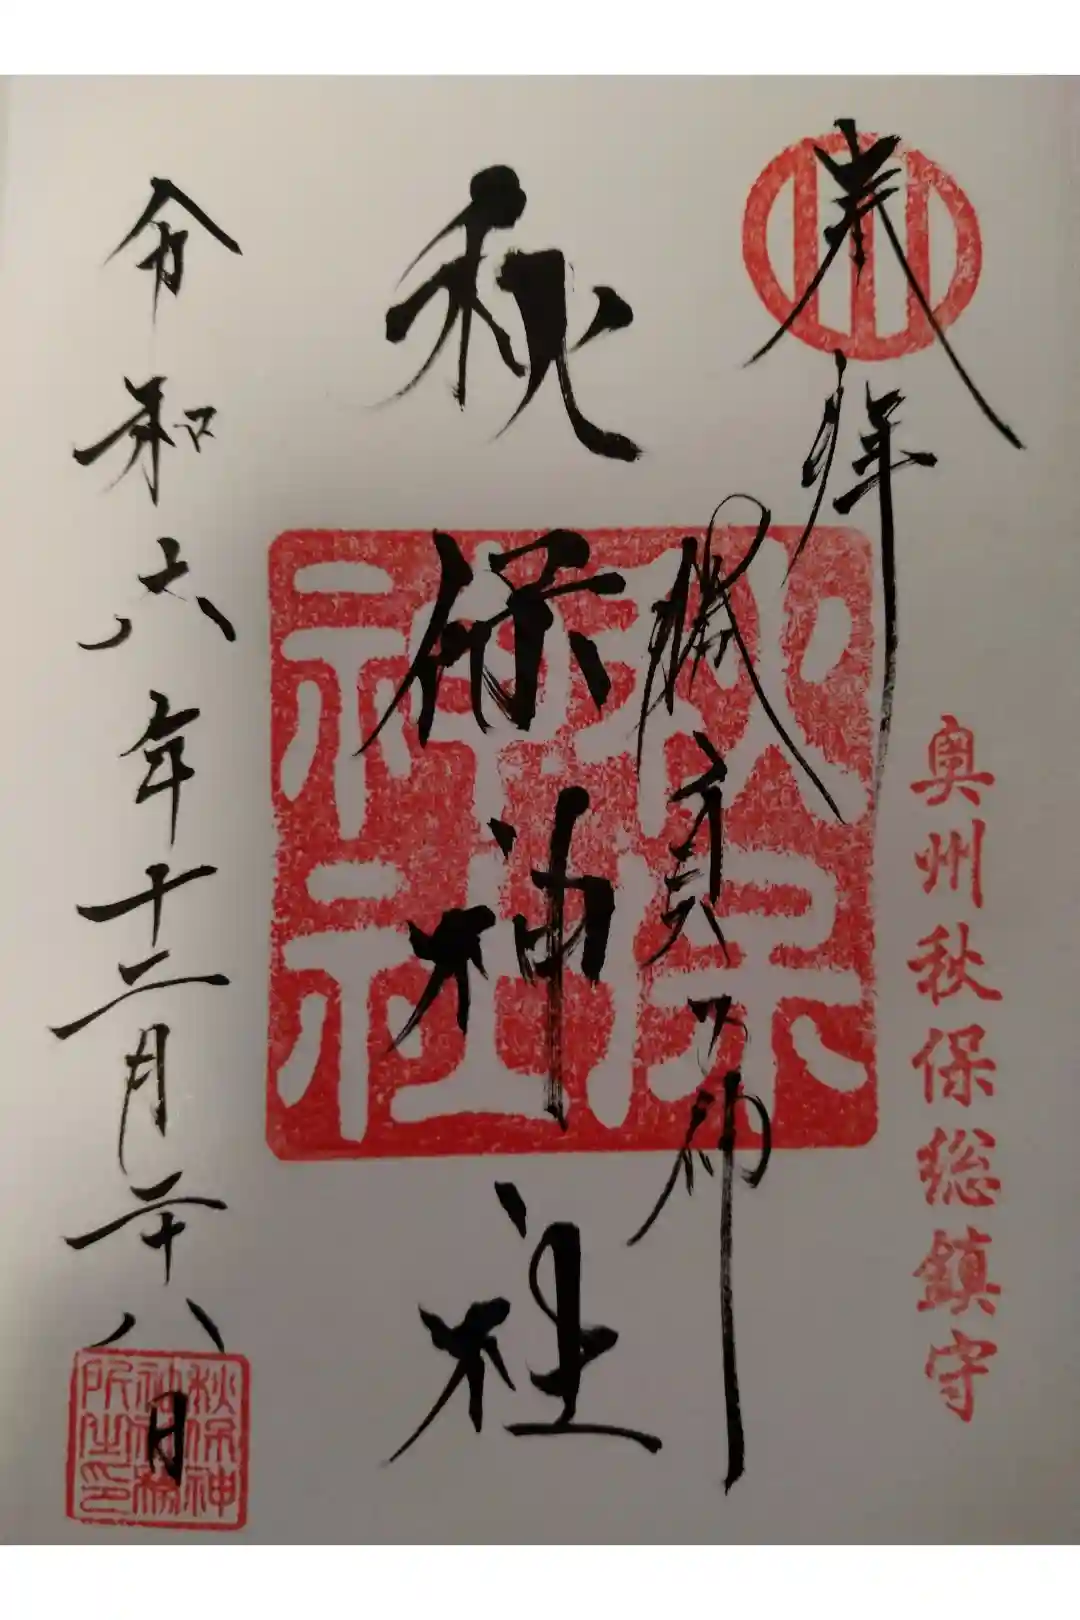 奉拝
奥州秋保総鎮守
勝負の神
秋保神社
秋保神社
令和六年十二月二十八日
秋保神
神社務
所之印